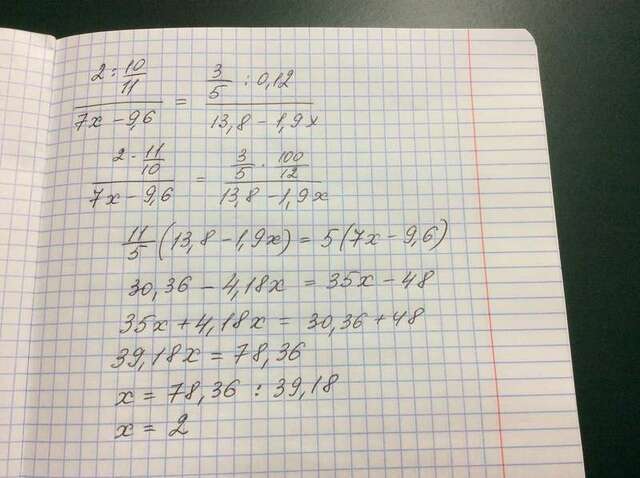 2 : 10/11 / 7x − 9,6 = 3/5 : 0,12 / 13,8 − 1,9x
2 · 11/10 / 7x − 9,6 = 3/5 · 100/12 / 13,8 − 1,9x
11/5 (13,8 − 1,9x) = 5(7x − 9,6)
30,36 − 4,18x = 35x − 48
35x + 4,18x = 30,36 + 48
39,18x = 78,36
x = 78,36 : 39,18
x = 2